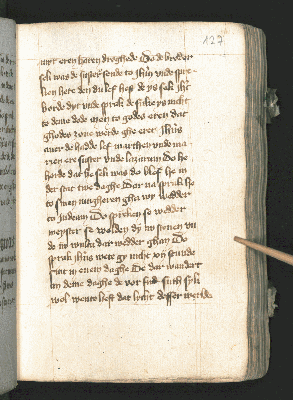 127
myt eren haren droghede Do de broder
sek was de suster sende to Jhu vnde spre
ken here den du lef hest de ys sek Jhc
horde dyt vnde sprak de seke ys nicht
to deme dode men to godes eren dat
ghodes sone werde ghe eret Jhus
auer de hadde lef marthen vnde ma
rien ere suster vnde lazarum Do he
horde dat he sek was do blef he in
der stat twe daghe Dar na sprak he
to sinen iungheren gha wy wedder
to Judeam Do spreken se wedder
meyster se wolden dy nu stenen vn
de nu wultu dar wedder ghan Do
sprak ihus wete gy nicht xij stunde
sint in enem daghe De dar wandert
in deme daghe de vor sic nicht
wol wente he set dat lycht desser werlde